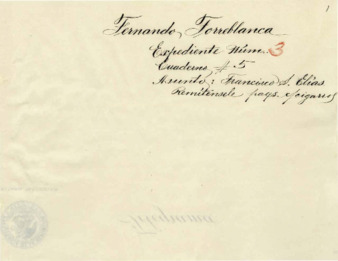 1
Fernando Torreblanca
Expediente Núm. 3
Cuaderno # 5
Asunto: Francisco S. Elías
Remítensele pags. cigarros